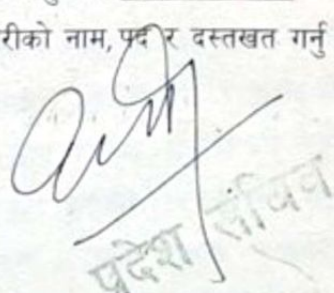 रीको नाम, पद र दस्तखत गर्नु
प्रदेश सचिव